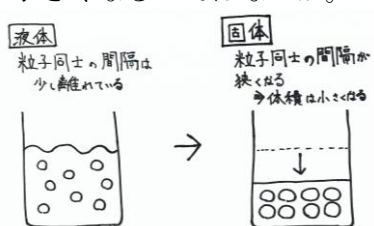 液体
粒子同士の間隔は
少し離れている
固体
粒子同士の間隔が
狭くなる
→体積は小さくなる